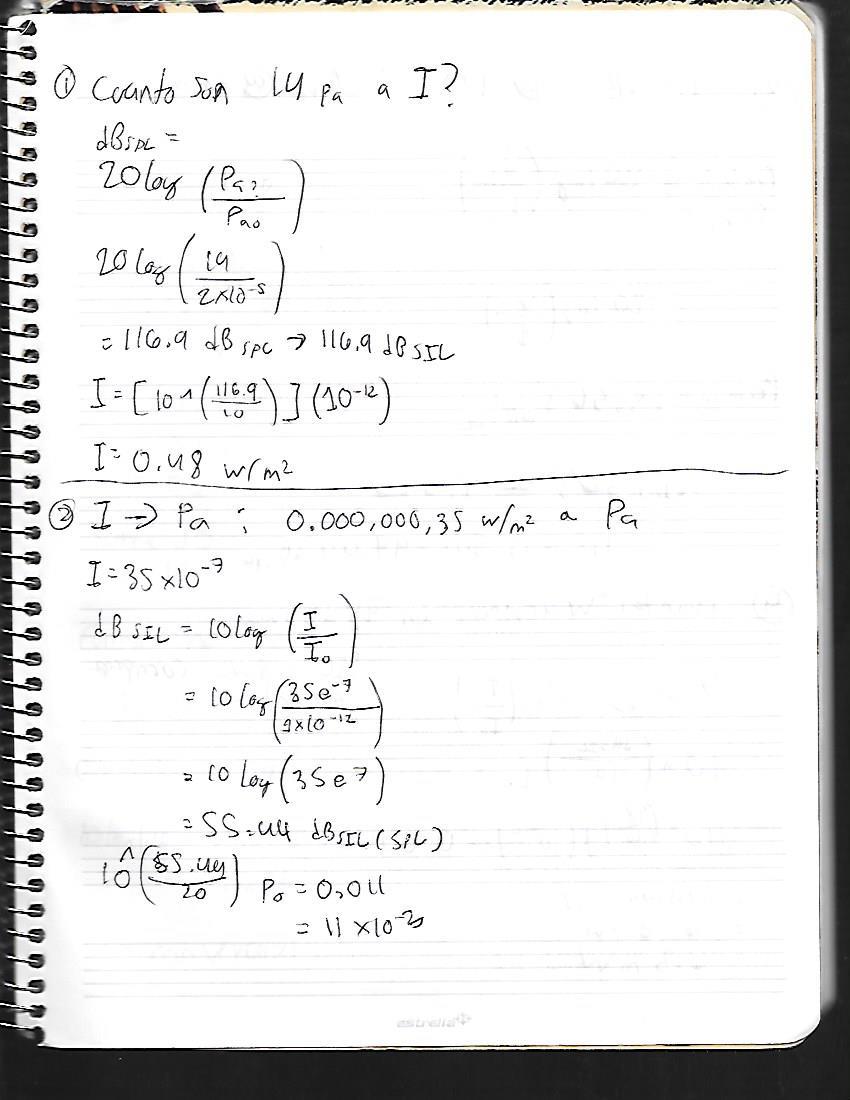 ① Cuanto son 14 Pa a I?
dBSPL =
20 log (Pa2 / Pa0)
20 log (14 / 2×10⁻⁵)
= 116.9 dB SPL → 116.9 dB SIL
I = [10^(116.9/10)] (10⁻¹²)
I = 0.48 w/m²
② I → Pa : 0.000,000,35 w/m² a Pa
I = 35×10⁻⁷
dB SIL = 10 log (I / I₀)
= 10 log (35e⁻⁷ / 1×10⁻¹²)
= 10 log (35e7)
= 55.44 dBSIL (SPL)
10^(55.44/20) P₀ = 0,011
= 11 ×10⁻³
australia